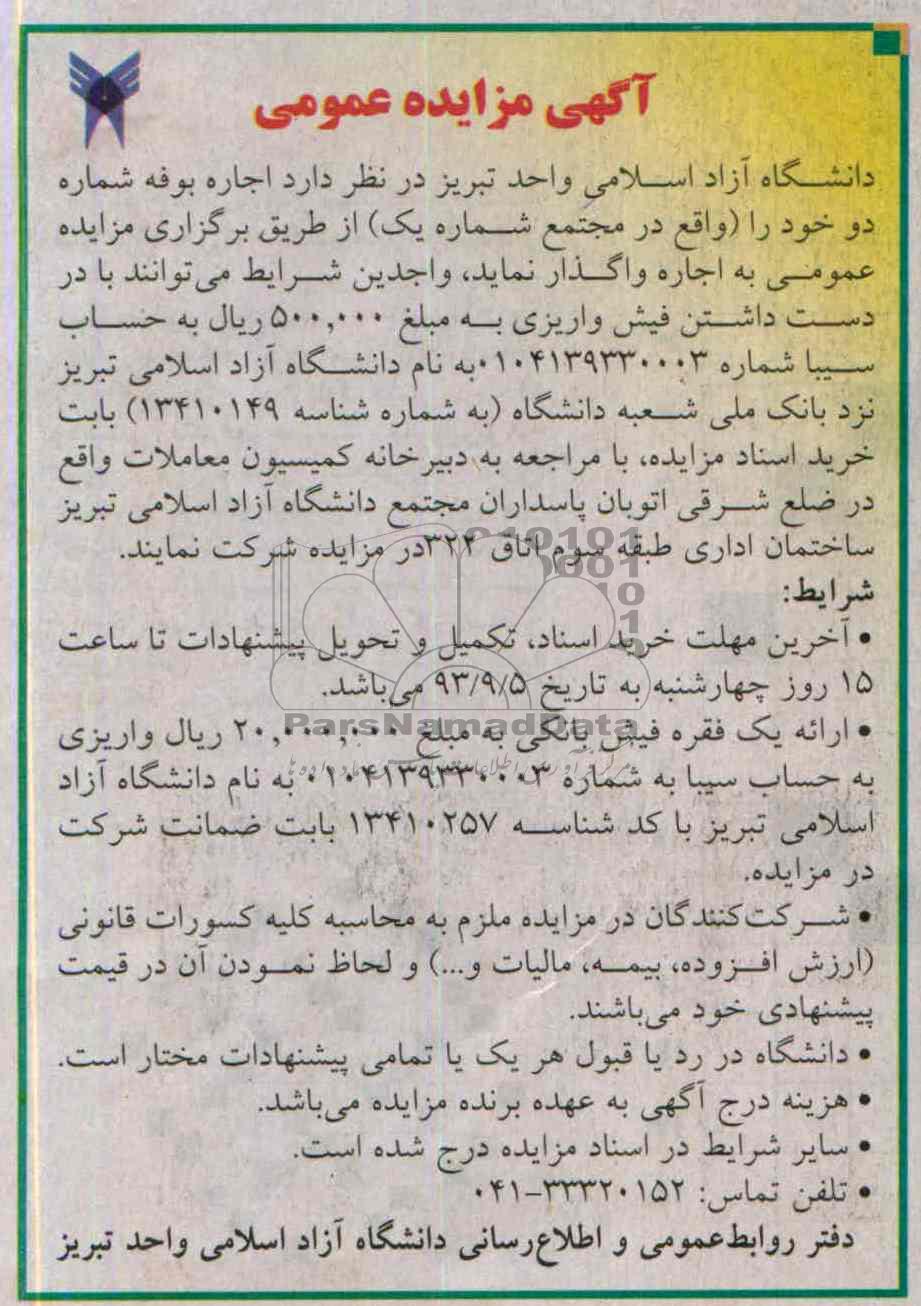 آگهی مزایده عمومی
دانشگاه آزاد اسلامی واحد تبریز در نظر دارد اجاره بوفه شماره
دو خود را (واقع در مجتمع شماره یک) از طریق برگزاری مزایده
عمومی به اجاره واگذار نماید، واجدین شرایط می‌توانند با در
دست داشتن فیش واریزی به مبلغ ۵۰۰,۰۰۰ ریال به حساب
سیبا شماره ۰۱۰۴۱۳۹۳۳۰۰۰۳به نام دانشگاه آزاد اسلامی تبریز
نزد بانک ملی شعبه دانشگاه (به شماره شناسه ۱۳۴۱۰۱۴۹) بابت
خرید اسناد مزایده، با مراجعه به دبیرخانه کمیسیون معاملات واقع
در ضلع شرقی اتوبان پاسداران مجتمع دانشگاه آزاد اسلامی تبریز
ساختمان اداری طبقه سوم اتاق ۳۲۲در مزایده شرکت نمایند.
شرایط:
• آخرین مهلت خرید اسناد، تکمیل و تحویل پیشنهادات تا ساعت
۱۵ روز چهارشنبه به تاریخ ۹۳/۹/۵ می‌باشد.
ParsNamadData
• ارائه یک فقره فیش بانکی به مبلغ ۲۰,۰۰۰,۰۰۰ ریال واریزی
به حساب سیبا به شماره ۰۱۰۴۱۳۹۳۳۰۰۰۳ به نام دانشگاه آزاد
اسلامی تبریز با کد شناسه ۱۳۴۱۰۲۵۷ بابت ضمانت شرکت
در مزایده.
• شرکت‌کنندگان در مزایده ملزم به محاسبه کلیه کسورات قانونی
(ارزش افزوده، بیمه، مالیات و...) و لحاظ نمودن آن در قیمت
پیشنهادی خود می‌باشند.
• دانشگاه در رد یا قبول هر یک یا تمامی پیشنهادات مختار است.
• هزینه درج آگهی به عهده برنده مزایده می‌باشد.
• سایر شرایط در اسناد مزایده درج شده است.
• تلفن تماس: ۳۳۳۲۰۱۵۲-۰۴۱
دفتر روابط‌عمومی و اطلاع‌رسانی دانشگاه آزاد اسلامی واحد تبریز